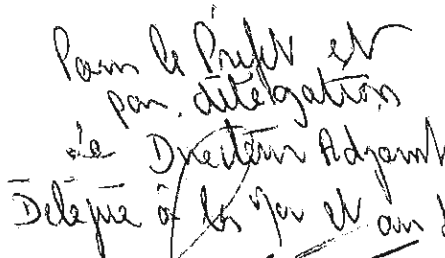 Pour le Préfet et
par délégation
le Directeur Adjoint
Délégué à la Mer et au